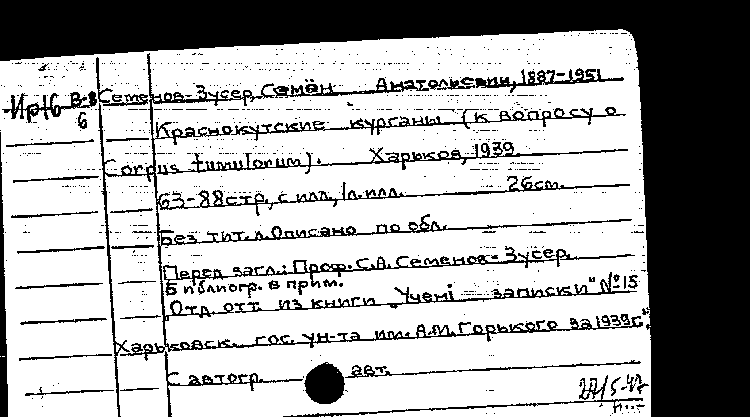 Ир46 В-8 Семенов-Зусер, Семён Анатольевич, 1887-1951
6
Краснокутские курганы (к вопросу о
Corpus tumulorum). Харьков, 1939.
63-88 стр., с илл., 1 л. илл. 26 см.
Без тит. л. Описано по обл.
Перед загл.: Проф. С.А. Семенов-Зусер.
Библиогр. в прим.
Отд. отт. из книги „Учені записки" №15
Харьковск. гос. ун-та им. А.М. Горького за 1939 г."
С автогр. авт.